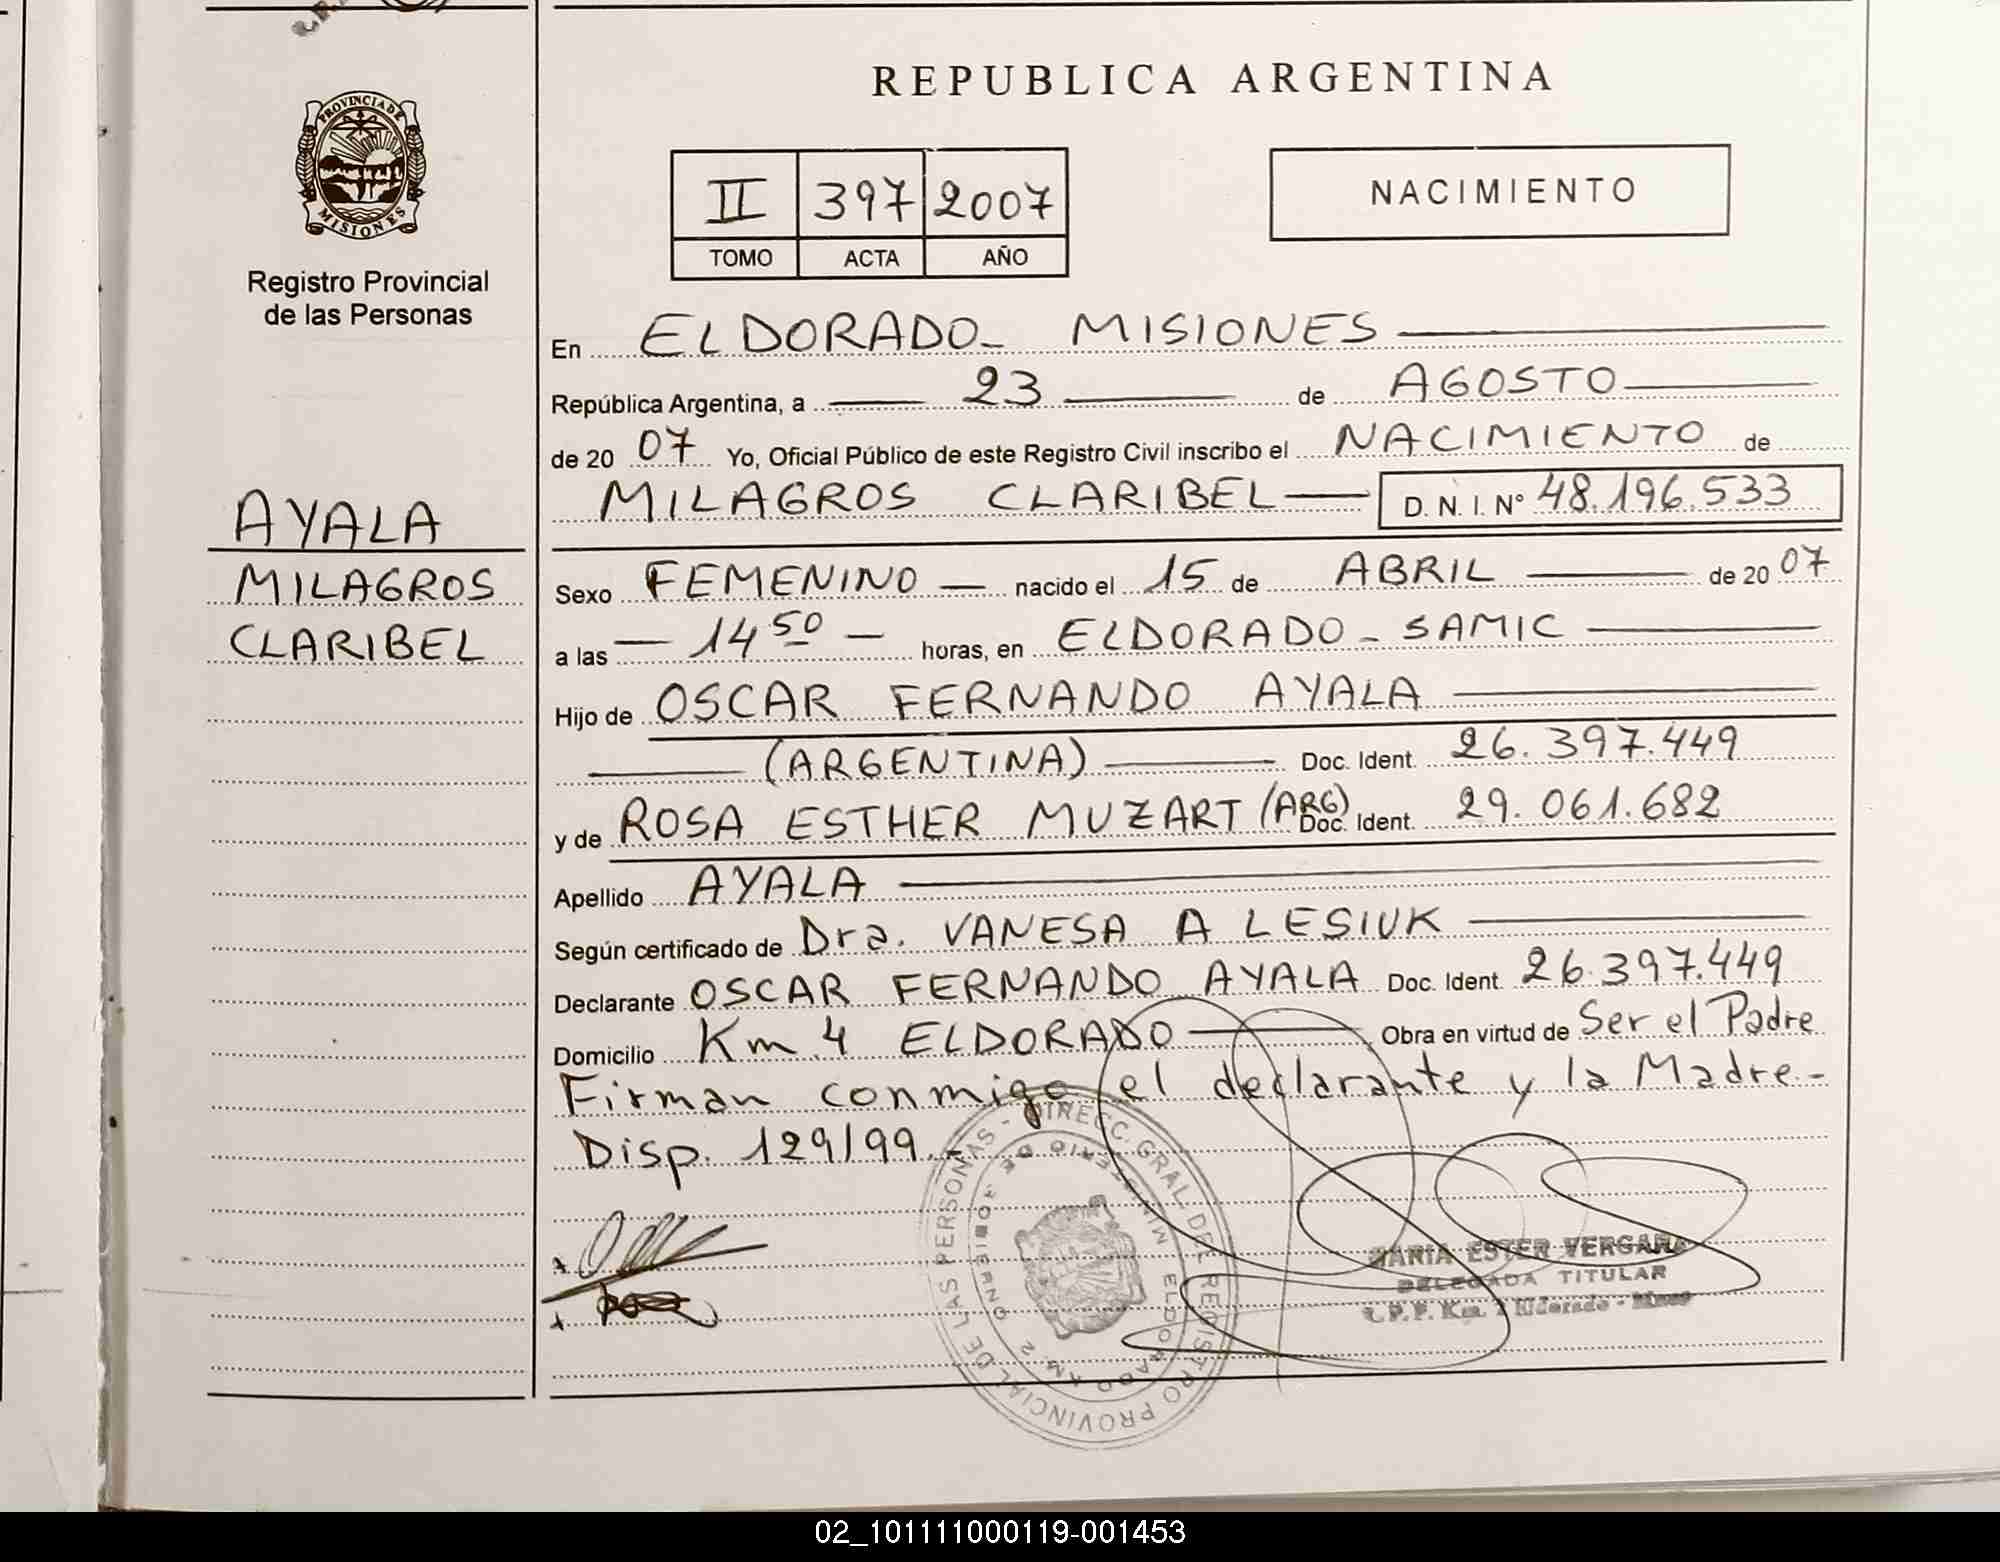 PROVINCIA DE
MISIONES
Registro Provincial
de las Personas
AYALA
MILAGROS
CLARIBEL
REPUBLICA ARGENTINA
II 397 2007
TOMO ACTA AÑO
NACIMIENTO
En ELDORADO - MISIONES
República Argentina, a 23 de AGOSTO
de 20 07 Yo, Oficial Público de este Registro Civil inscribo el NACIMIENTO de
MILAGROS CLARIBEL D. N. I. Nº 48.196.533
Sexo FEMENINO nacido el 15 de ABRIL de 20 07
a las 14 50 horas, en ELDORADO - SAMIC
Hijo de OSCAR FERNANDO AYALA
(ARGENTINA) Doc. Ident. 26.397.449
y de ROSA ESTHER MUZART (ARG) Doc. Ident. 29.061.682
Apellido AYALA
Según certificado de Dra. VANESA A LESIUK
Declarante OSCAR FERNANDO AYALA Doc. Ident. 26.397.449
Domicilio Km 4 ELDORADO Obra en virtud de Ser el Padre
Firman conmigo el declarante y la Madre.-
Disp. 129/99.-
DIRECC. GRAL. DEL REGISTRO PROVINCIAL DE LAS PERSONAS -
MINISTERIO DE GOBIERNO
ELDORADO KM. 2
MARIA ESTER VERGARA
DELEGADA TITULAR
R.P.P. Km. 2 Eldorado - Mnes
02_101111000119-001453